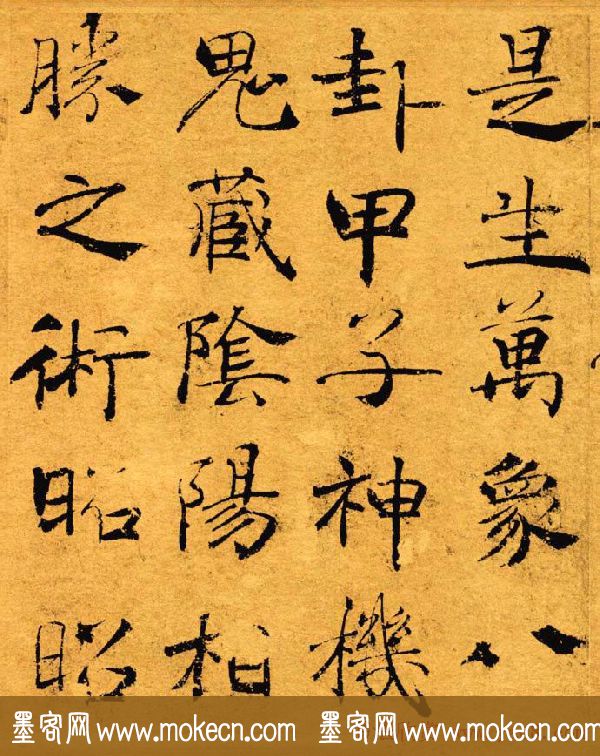 是生萬象八
卦甲子神機
鬼藏陰陽相
勝之術昭
昭
墨客网 www.mokecn.com 墨客网 www.mokecn.com